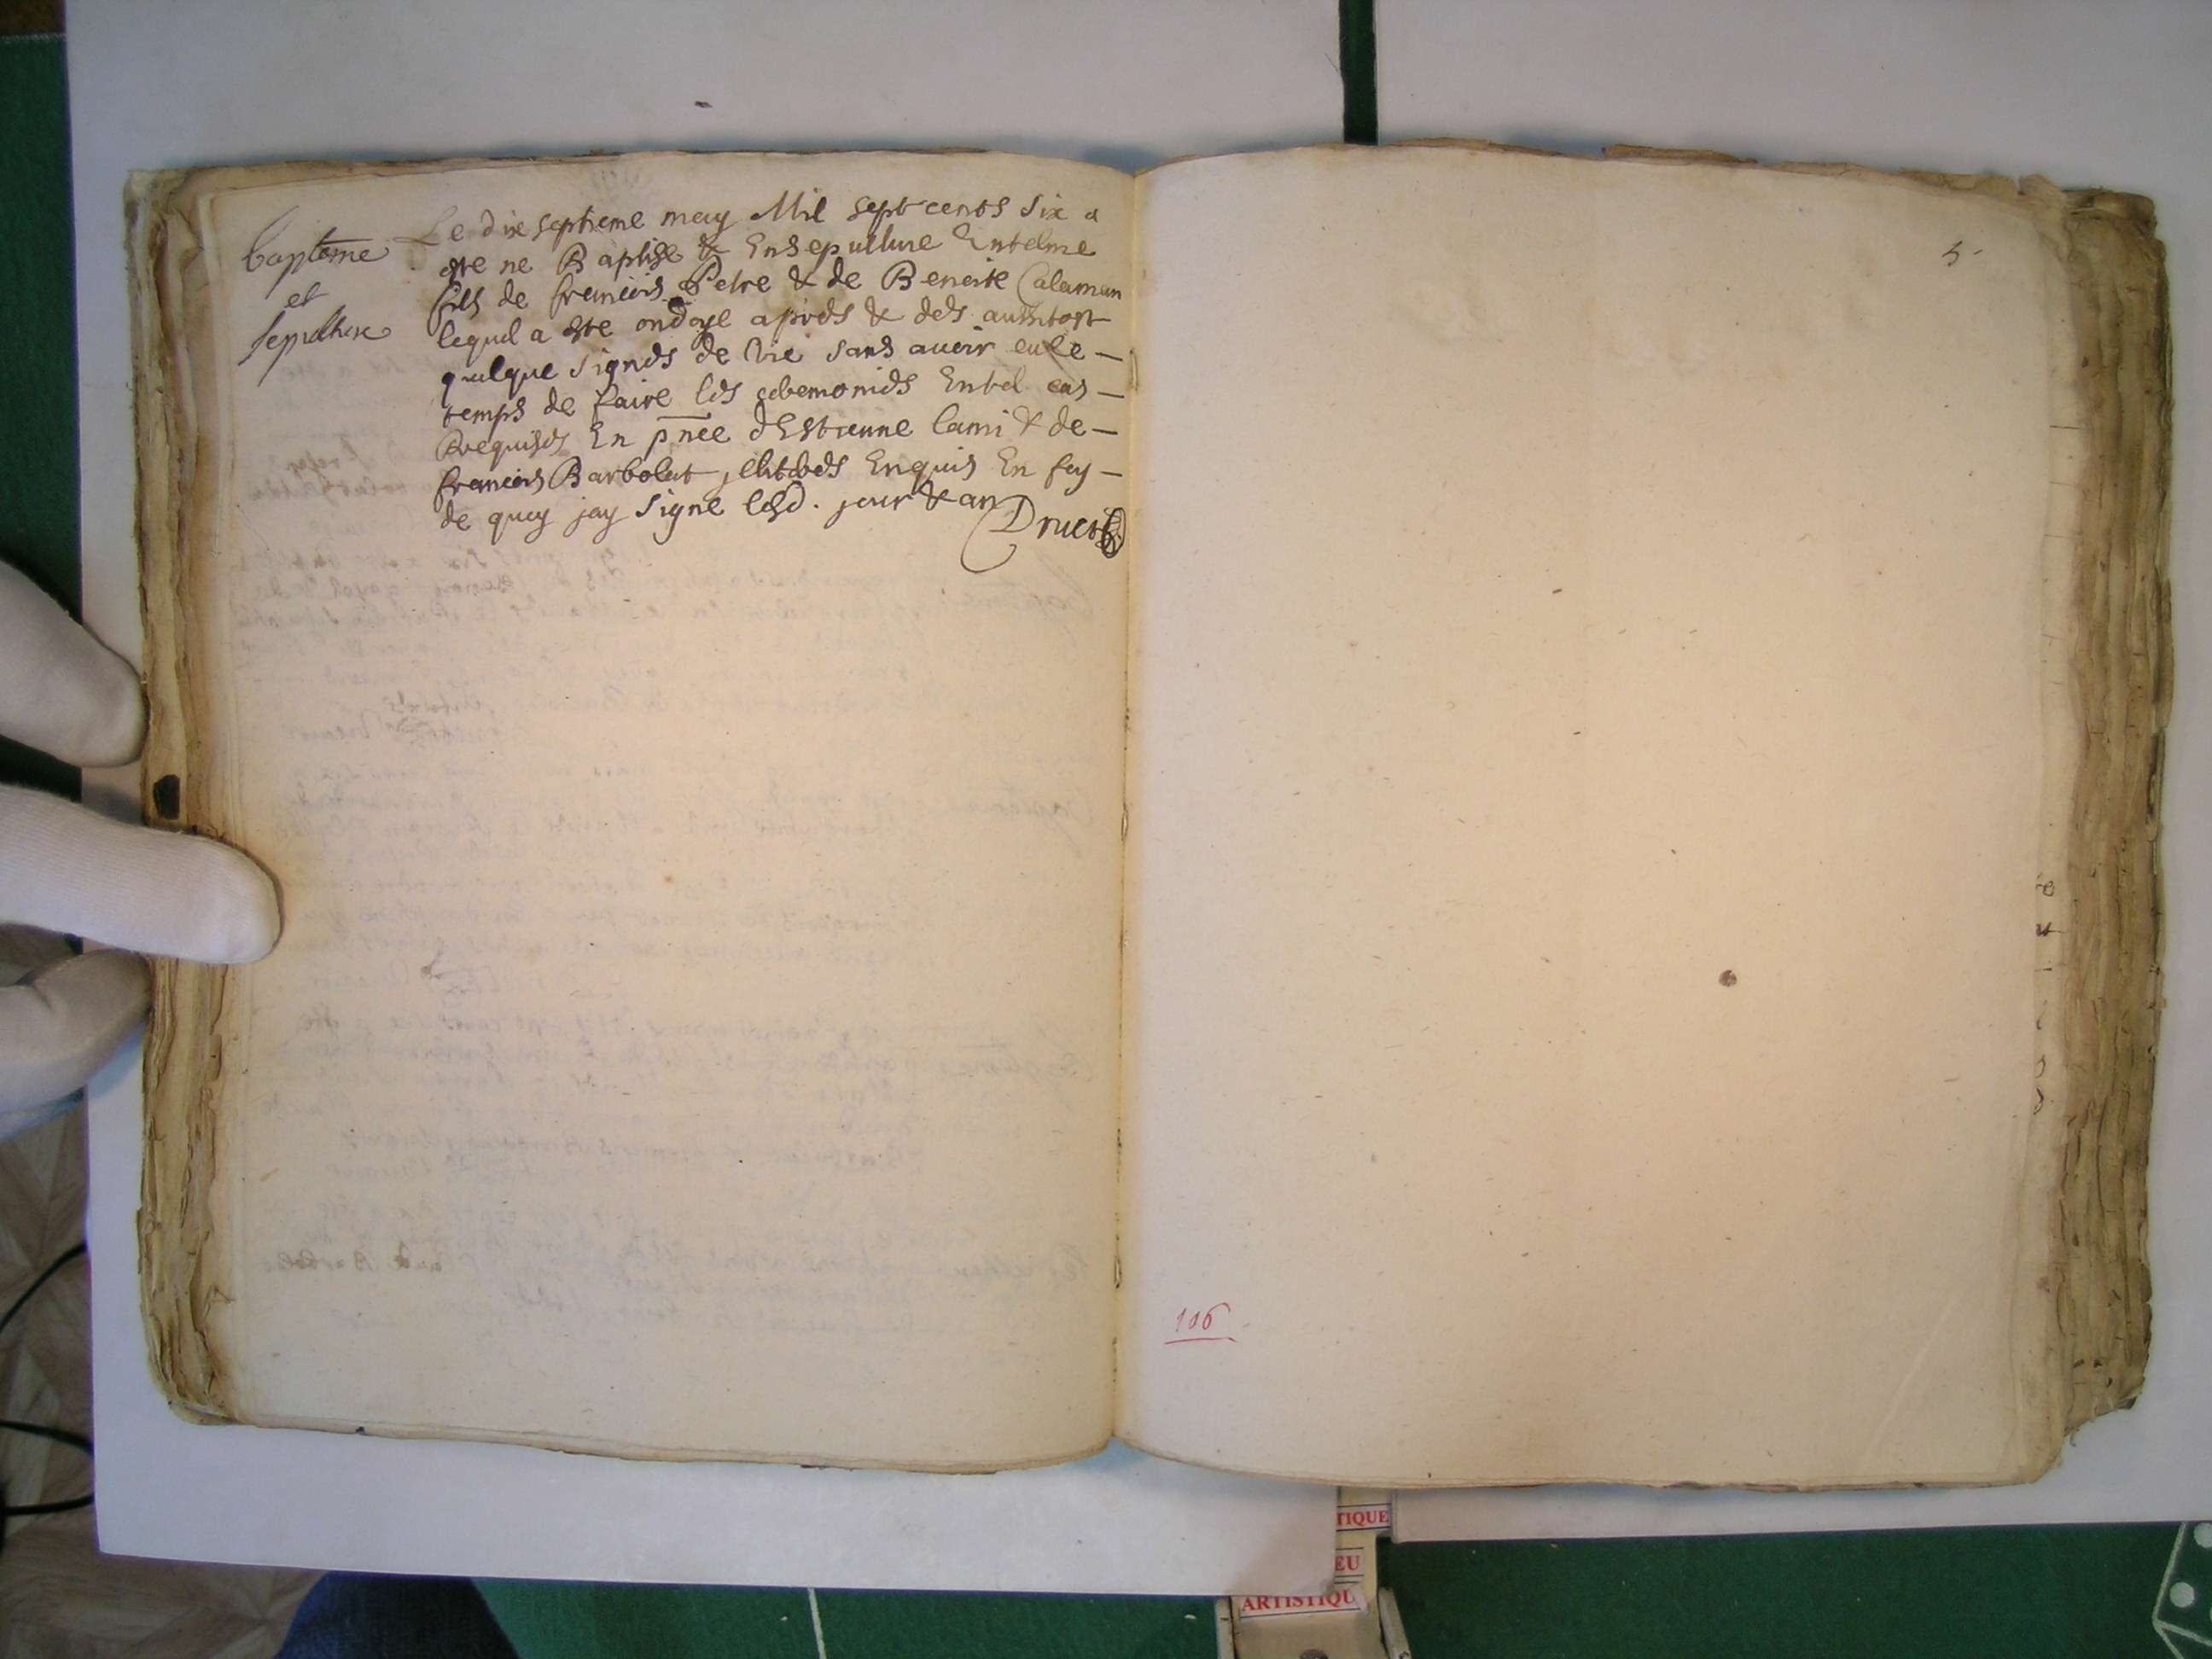 baptême
et
sepulture
Le dixseptieme may Mil sept cents six a
este ne Baptise & Ensepulture Entelme
fils de francois Petre & de Benoite Calaman
lequel a este ondoye apreds & deds aussitost
quelque signeds de vie sans avoir eu le —
temps de faire leds ceremonieds En tel cas —
Requiseds En pnce dEstienne lami & de —
francois Barbolat, Enquis En foy —
de quoy jay signe lesd. jour & an
Druet
5
106
TIQUE
EU
ARTISTIQU